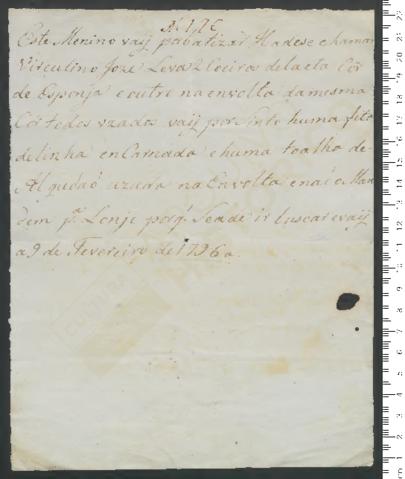 Este Menino vaij pabatizár Hadese chamar
Virculino Joze Leva 2 Coeiros de la eta Côr
de Esponja e outro na envolta da mesma
Côr todos uzados vaij por sinto huma fita
de linha enCarnada e huma toalha de
Algudaõ uzada na Envolta e naõ o Man
dem pª. Lonje porq̃. Seade ir buscar e vaij
a 9 de Fevereiro de 1796 a.